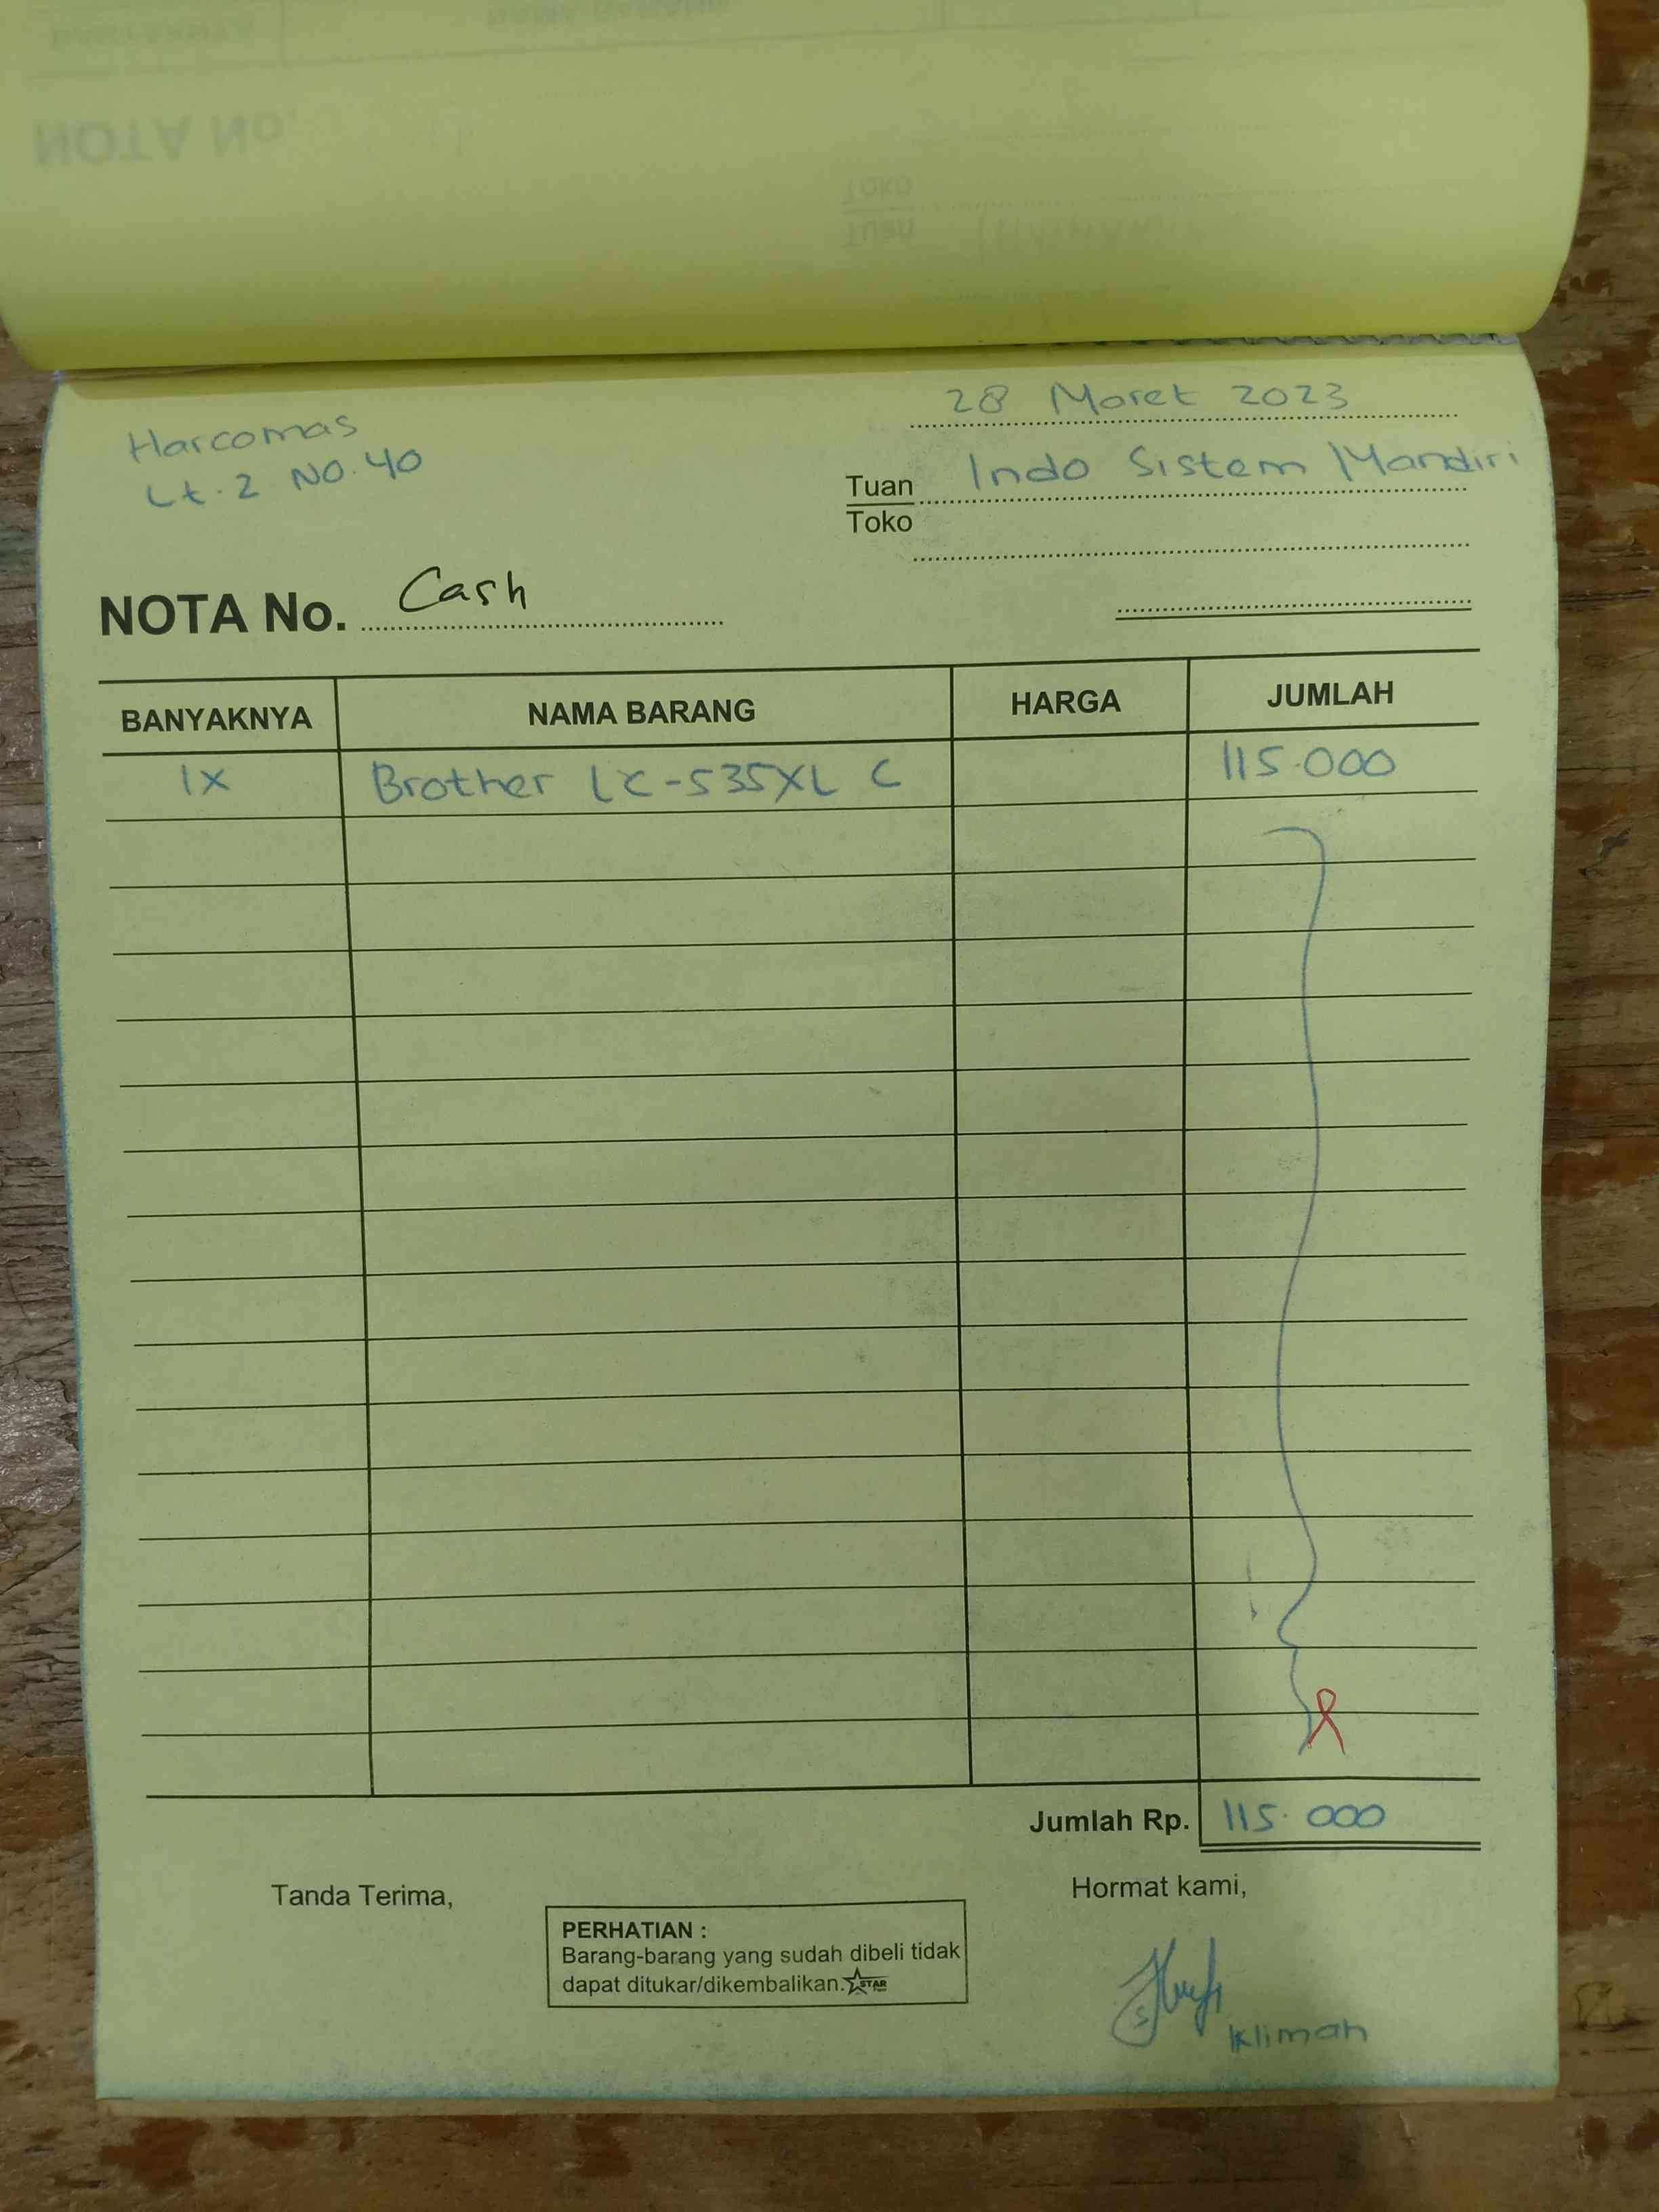 28 Maret 2023
Harcomas
Lt. 2 NO. 40
Tuan Indo Sistem Mandiri
Toko
NOTA No. Cash
BANYAKNYA NAMA BARANG HARGA JUMLAH
1X Brother LC-535XL C 115.000
Jumlah Rp. 115.000
Tanda Terima,
Hormat kami,
PERHATIAN :
Barang-barang yang sudah dibeli tidak
dapat ditukar/dikembalikan. STAR
Iklimah